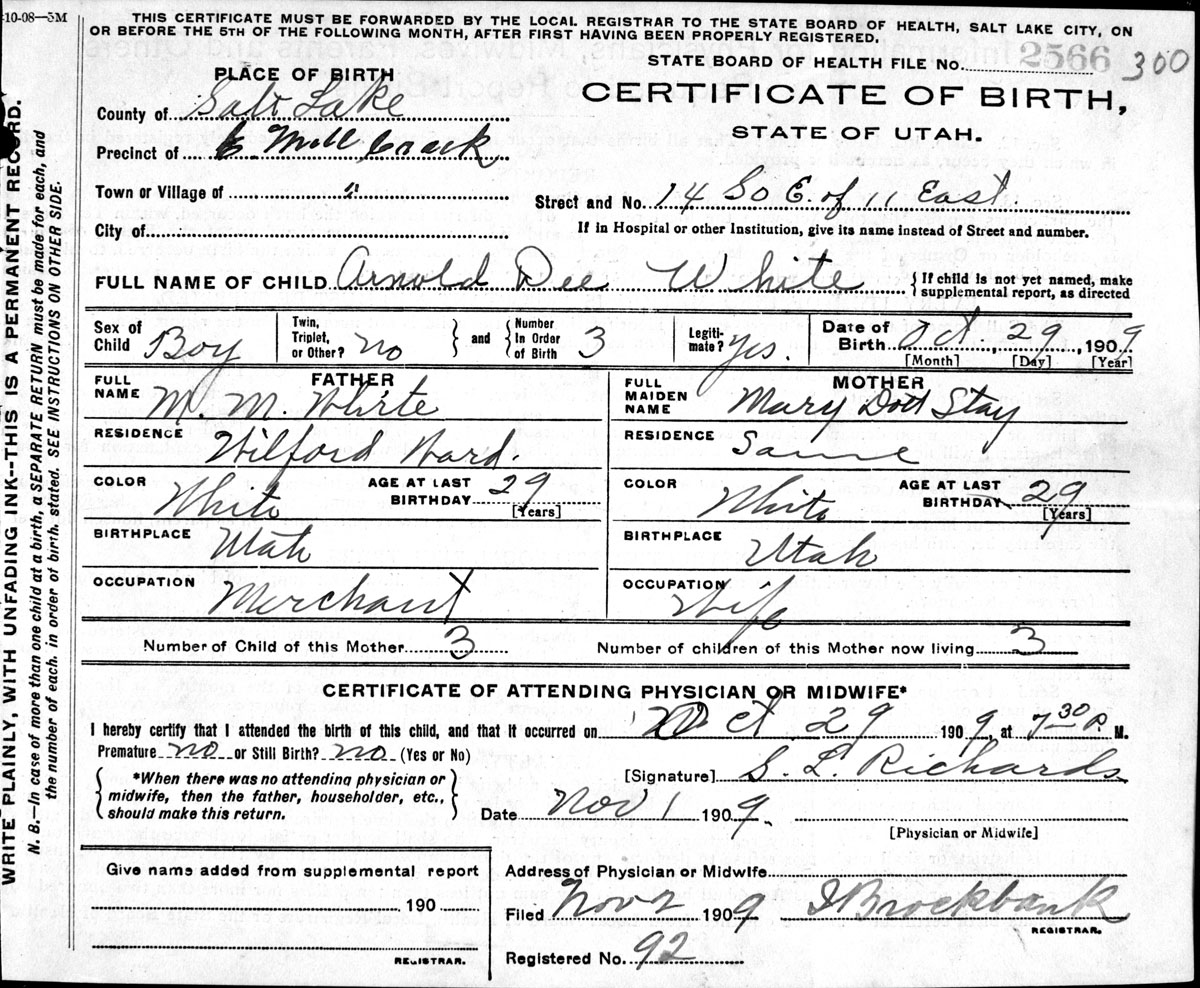 10-08—5M
THIS CERTIFICATE MUST BE FORWARDED BY THE LOCAL REGISTRAR TO THE STATE BOARD OF HEALTH, SALT LAKE CITY, ON
OR BEFORE THE 5TH OF THE FOLLOWING MONTH, AFTER FIRST HAVING BEEN PROPERLY REGISTERED.
STATE BOARD OF HEALTH FILE No. 2566 300
PLACE OF BIRTH
CERTIFICATE OF BIRTH,
STATE OF UTAH.
County of Salt Lake
Precinct of E. Mill Creek
Town or Village of "
Street and No. 14 So E. of 11 East
City of
If in Hospital or other Institution, give its name instead of Street and number.
FULL NAME OF CHILD Arnold Dee White { If child is not yet named, make
supplemental report, as directed
Sex of Child Boy Twin, Triplet, or Other? no } and { Number In Order of Birth 3 Legiti-mate? Yes. Date of Birth Oct 29, 1909
[Month] [Day] [Year]
FATHER MOTHER
FULL NAME M. M. White FULL MAIDEN NAME Mary Dott Stay
RESIDENCE Wilford Ward. RESIDENCE Same
COLOR White AGE AT LAST BIRTHDAY 29 [Years] COLOR White AGE AT LAST BIRTHDAY 29 [Years]
BIRTHPLACE Utah BIRTHPLACE Utah
OCCUPATION Merchant OCCUPATION Wife
Number of Child of this Mother 3 Number of children of this Mother now living 3
CERTIFICATE OF ATTENDING PHYSICIAN OR MIDWIFE*
I hereby certify that I attended the birth of this child, and that it occurred on Oct 29 1909, at 7 30 P. M.
Premature no or Still Birth? no (Yes or No)
{ *When there was no attending physician or
midwife, then the father, householder, etc.,
should make this return. }
[Signature] S. L. Richards
Date Nov 1 1909.
[Physician or Midwife]
Give name added from supplemental report
190
REGISTRAR.
Address of Physician or Midwife
Filed Nov 2 1909 Brockbank
REGISTRAR.
Registered No. 92
WRITE PLAINLY, WITH UNFADING INK--THIS IS A PERMANENT RECORD.
N. B.—In case of more than one child at a birth, a SEPARATE RETURN must be made for each, and
the number of each, in order of birth, stated. SEE INSTRUCTIONS ON OTHER SIDE.